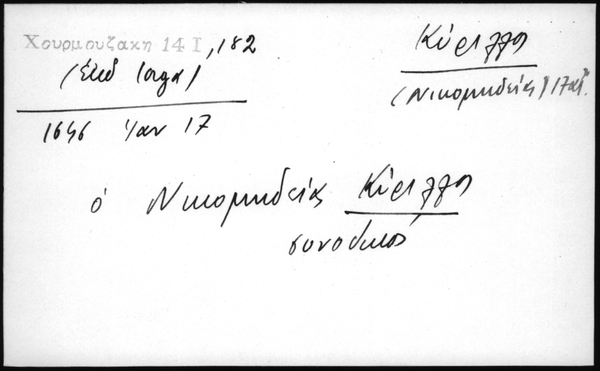 Χουρμουζακη 14 I, 182
(Έκδ Iorga)
1646 Ιαν 17
Κύριλλος
(Νικομηδείας) 17αι.
ὁ Νικομηδείας Κύριλλος
συνοδικός